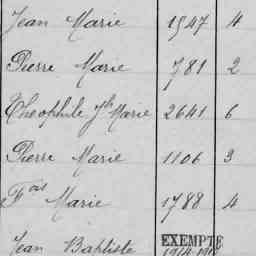 Jean Marie 1947 4
Pierre Marie 781 2
Théophile Jh Marie 2641 6
Pierre Marie 1106 3
Fois Marie 1788 4
Jean Baptiste EXEMPTÉ